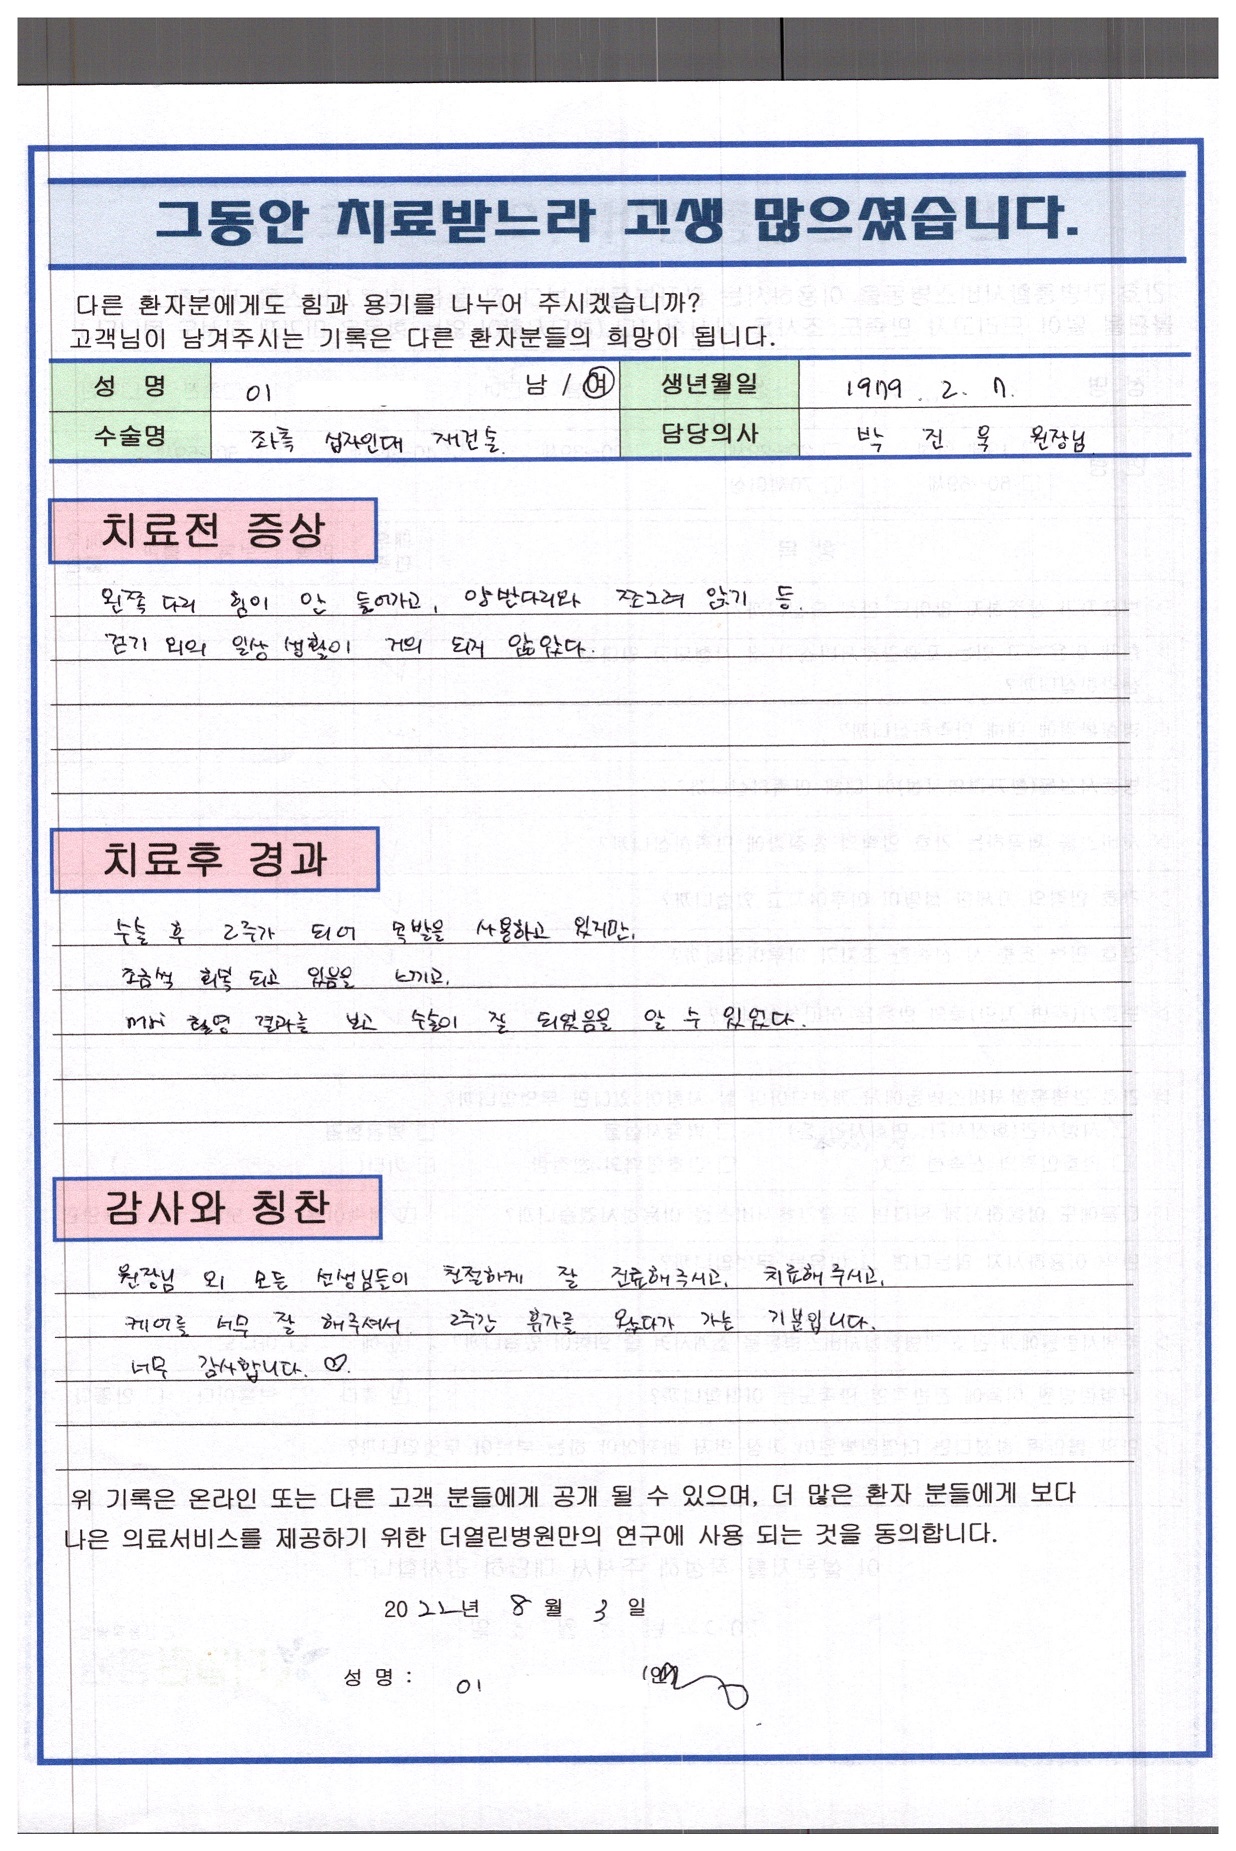 그동안 치료받느라 고생 많으셨습니다.
다른 환자분에게도 힘과 용기를 나누어 주시겠습니까?
고객님이 남겨주시는 기록은 다른 환자분들의 희망이 됩니다.
성 명 이 남 / 여 생년월일 1979. 2. 7.
수술명 좌측 십자인대 재건술. 담당의사 박 진 욱 원장님
치료전 증상
왼쪽 다리 힘이 안 들어가고, 양반다리와 쪼그려 앉기 등.
걷기 외의 일상 생활이 거의 되지 않았다.
치료후 경과
수술 후 2주가 되어 목발을 사용하고 있지만,
조금씩 회복 되고 있음을 느끼고,
mri 촬영 결과를 보고 수술이 잘 되었음을 알 수 있었다.
감사와 칭찬
원장님 외 모든 선생님들이 친절하게 잘 진료해주시고, 치료해주시고,
케어를 너무 잘 해주셔서 2주간 휴가를 왔다가 가는 기분입니다.
너무 감사합니다. ♡.
위 기록은 온라인 또는 다른 고객 분들에게 공개 될 수 있으며, 더 많은 환자 분들에게 보다
나은 의료서비스를 제공하기 위한 더열린병원만의 연구에 사용 되는 것을 동의합니다.
2022년 8월 3일
성 명 : 이 (인)